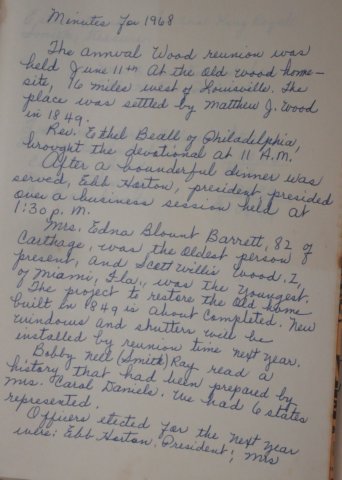 Minutes for 1968
The annival Wood reunion was
held June 11th at the old wood home-
site, 16 miles west of Louisville. The
place was settled by Matthew J. Wood
in 1849.
Rev. Ethel Beall of Philadelphia,
brought the devotional at 11 A.M.
After a bounderful dinner was
served, Ebb Horton, president presided
over a business session held at
1:30 p.m.
Mrs. Edna Blount Barrett, 82 of
Carthage, was the oldest person
present, and Scott Willis Wood, I,
of Miami, Fla., was the youngest.
The project to restore the old home
built in 1849 is about completed. New
windows and shutters will be
installed by reunion time next year.
Bobby Nell (Smith) Ray read a
history that had been prepared by
Mrs. Carol Daniels. We had 6 states
represented.
Officers elected for the next year
were: Ebb Horton. President; Mrs